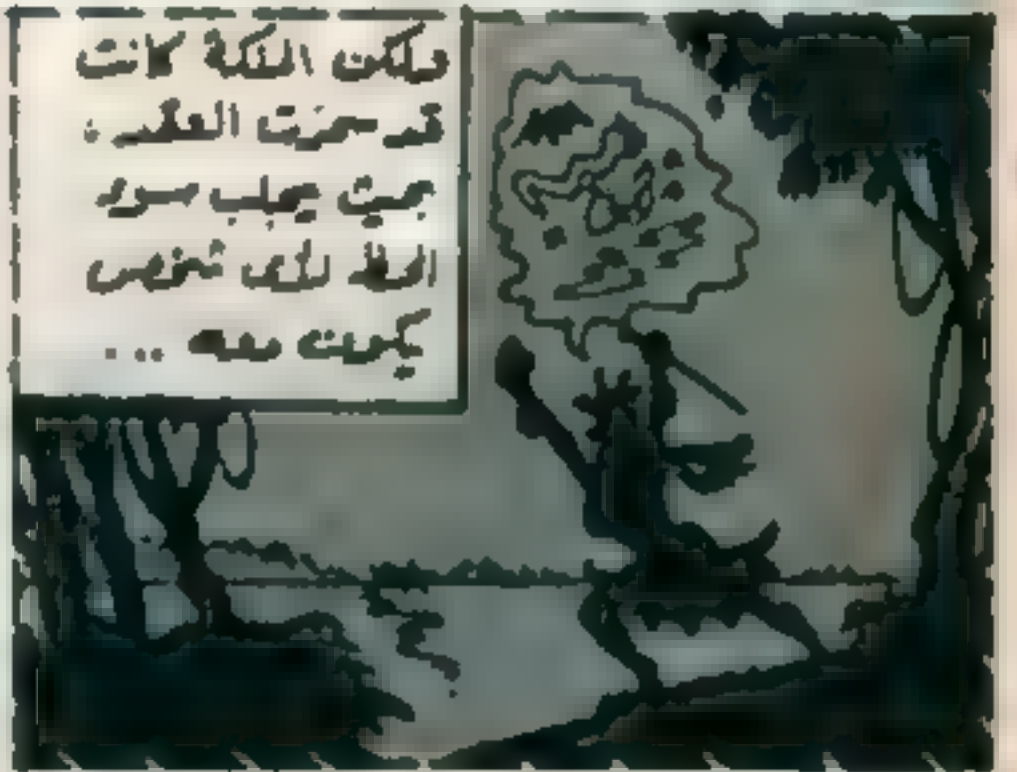 ولكن الملكة كانت
قد سحرت العقد
بحيث يجلب سوء
الحظ لأى شخص
يكون معه ...